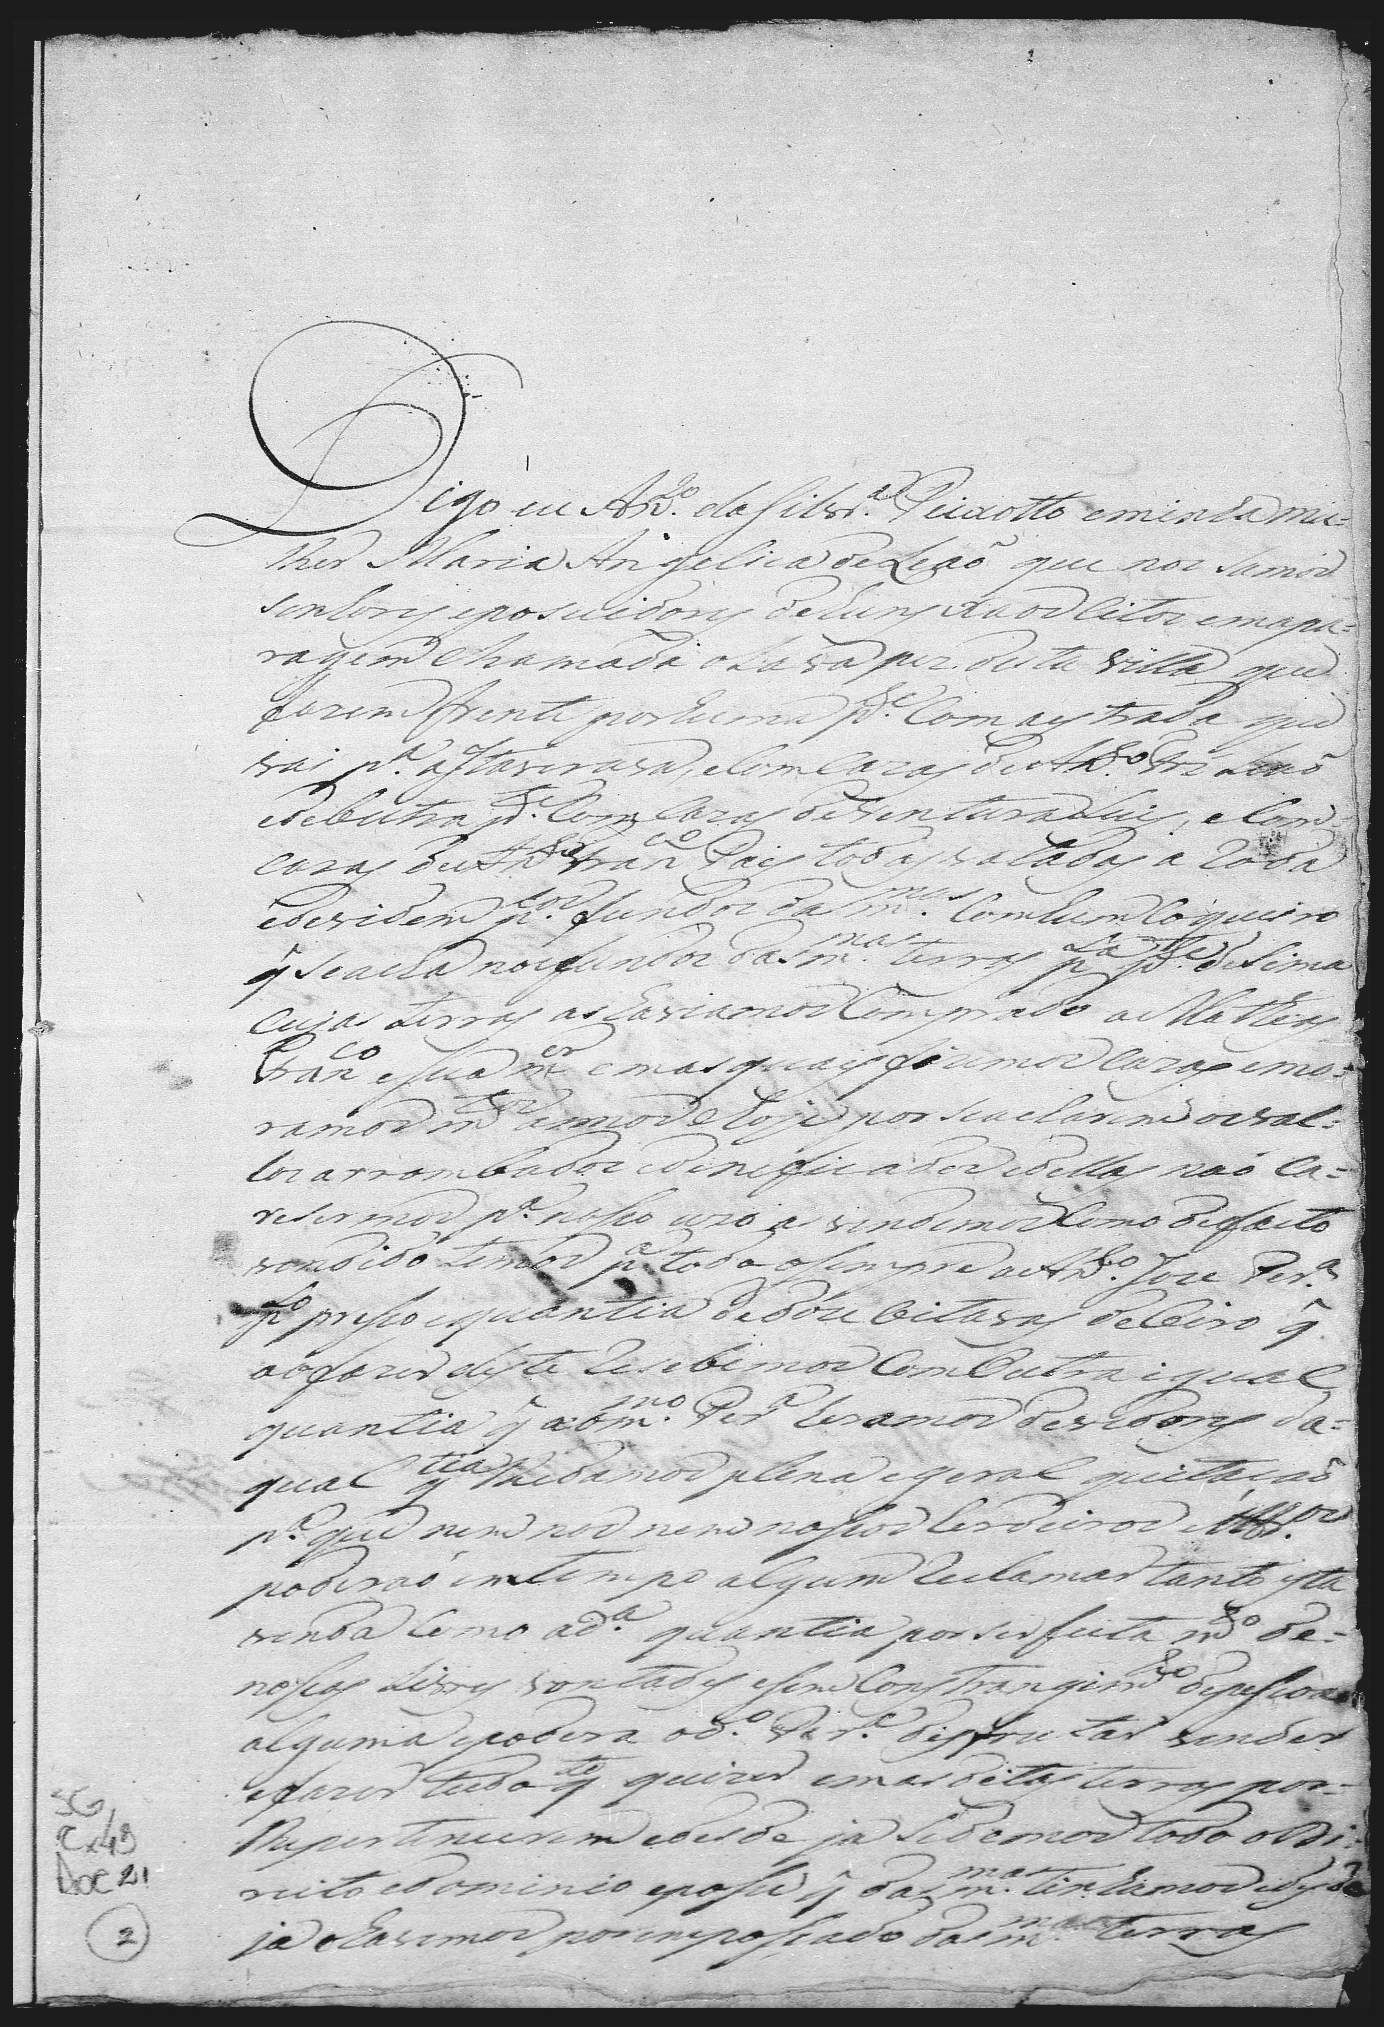 Digo eu An.to da Silvr.a Peixotto eminha mu=
lher Maria Angelica de Leaõ que nos samos
senhores eposuidores de huns xaos citos emapa=
ragem chamada olavapez desta villa que
fazem frente por huma p.te Com aestrada que
vai p.a aItaverava, eCom Cazas de An.to Leaõ
ede outra p.te Com Cazas de Ventura Luis, e Com
cazas de An.to Fran.co Pais todas valadas a Roda
edevidem p.los fundos das m.mas Com hum Coqueiro
q̃ seacha nos fundos das m.mas terras p.la p.te de Sima
Cujas terras as haviamos Comprado a Matheos
Fran.co esua m.er emas quais fizemos Cazas emo=
ramos m.tos annos e hoje por seacharem os val=
los arrombados edeneficados e dellas naõ Ca=
resermos p.a nosso uzo as vendemos Como de facto
vendido temos p.a todo o sempre a An.to Joze Per.a
p.lo presso equantia de doze oitavas de Oiro q̃
aofazer deste Resebemos Com Outra igual
quantia q̃ aom.mo Per.a heramos devedores da=
qual q.tia lhedamos plena egeral quitaçaõ
p.a que nem nos nem nossos herdeiros
poderaõ emtempo algum Reclamar tanto esta
venda Como ad.a quantia por ser feita m.to de=
nossas Livres vontades esem Constrangim.to depessoa
alguma epodera od.o Per.a desfrutar vender
efazer tudo q.to quizer emas ditas terras por=
lhepertencerem edesde ja Sedemos todo o Di=
reito edominio eposse q̃ das m.mas tinhamos edesde
ja ohavemos por empossado das m.mas terras
SG
Cx 49
Doc 21
2